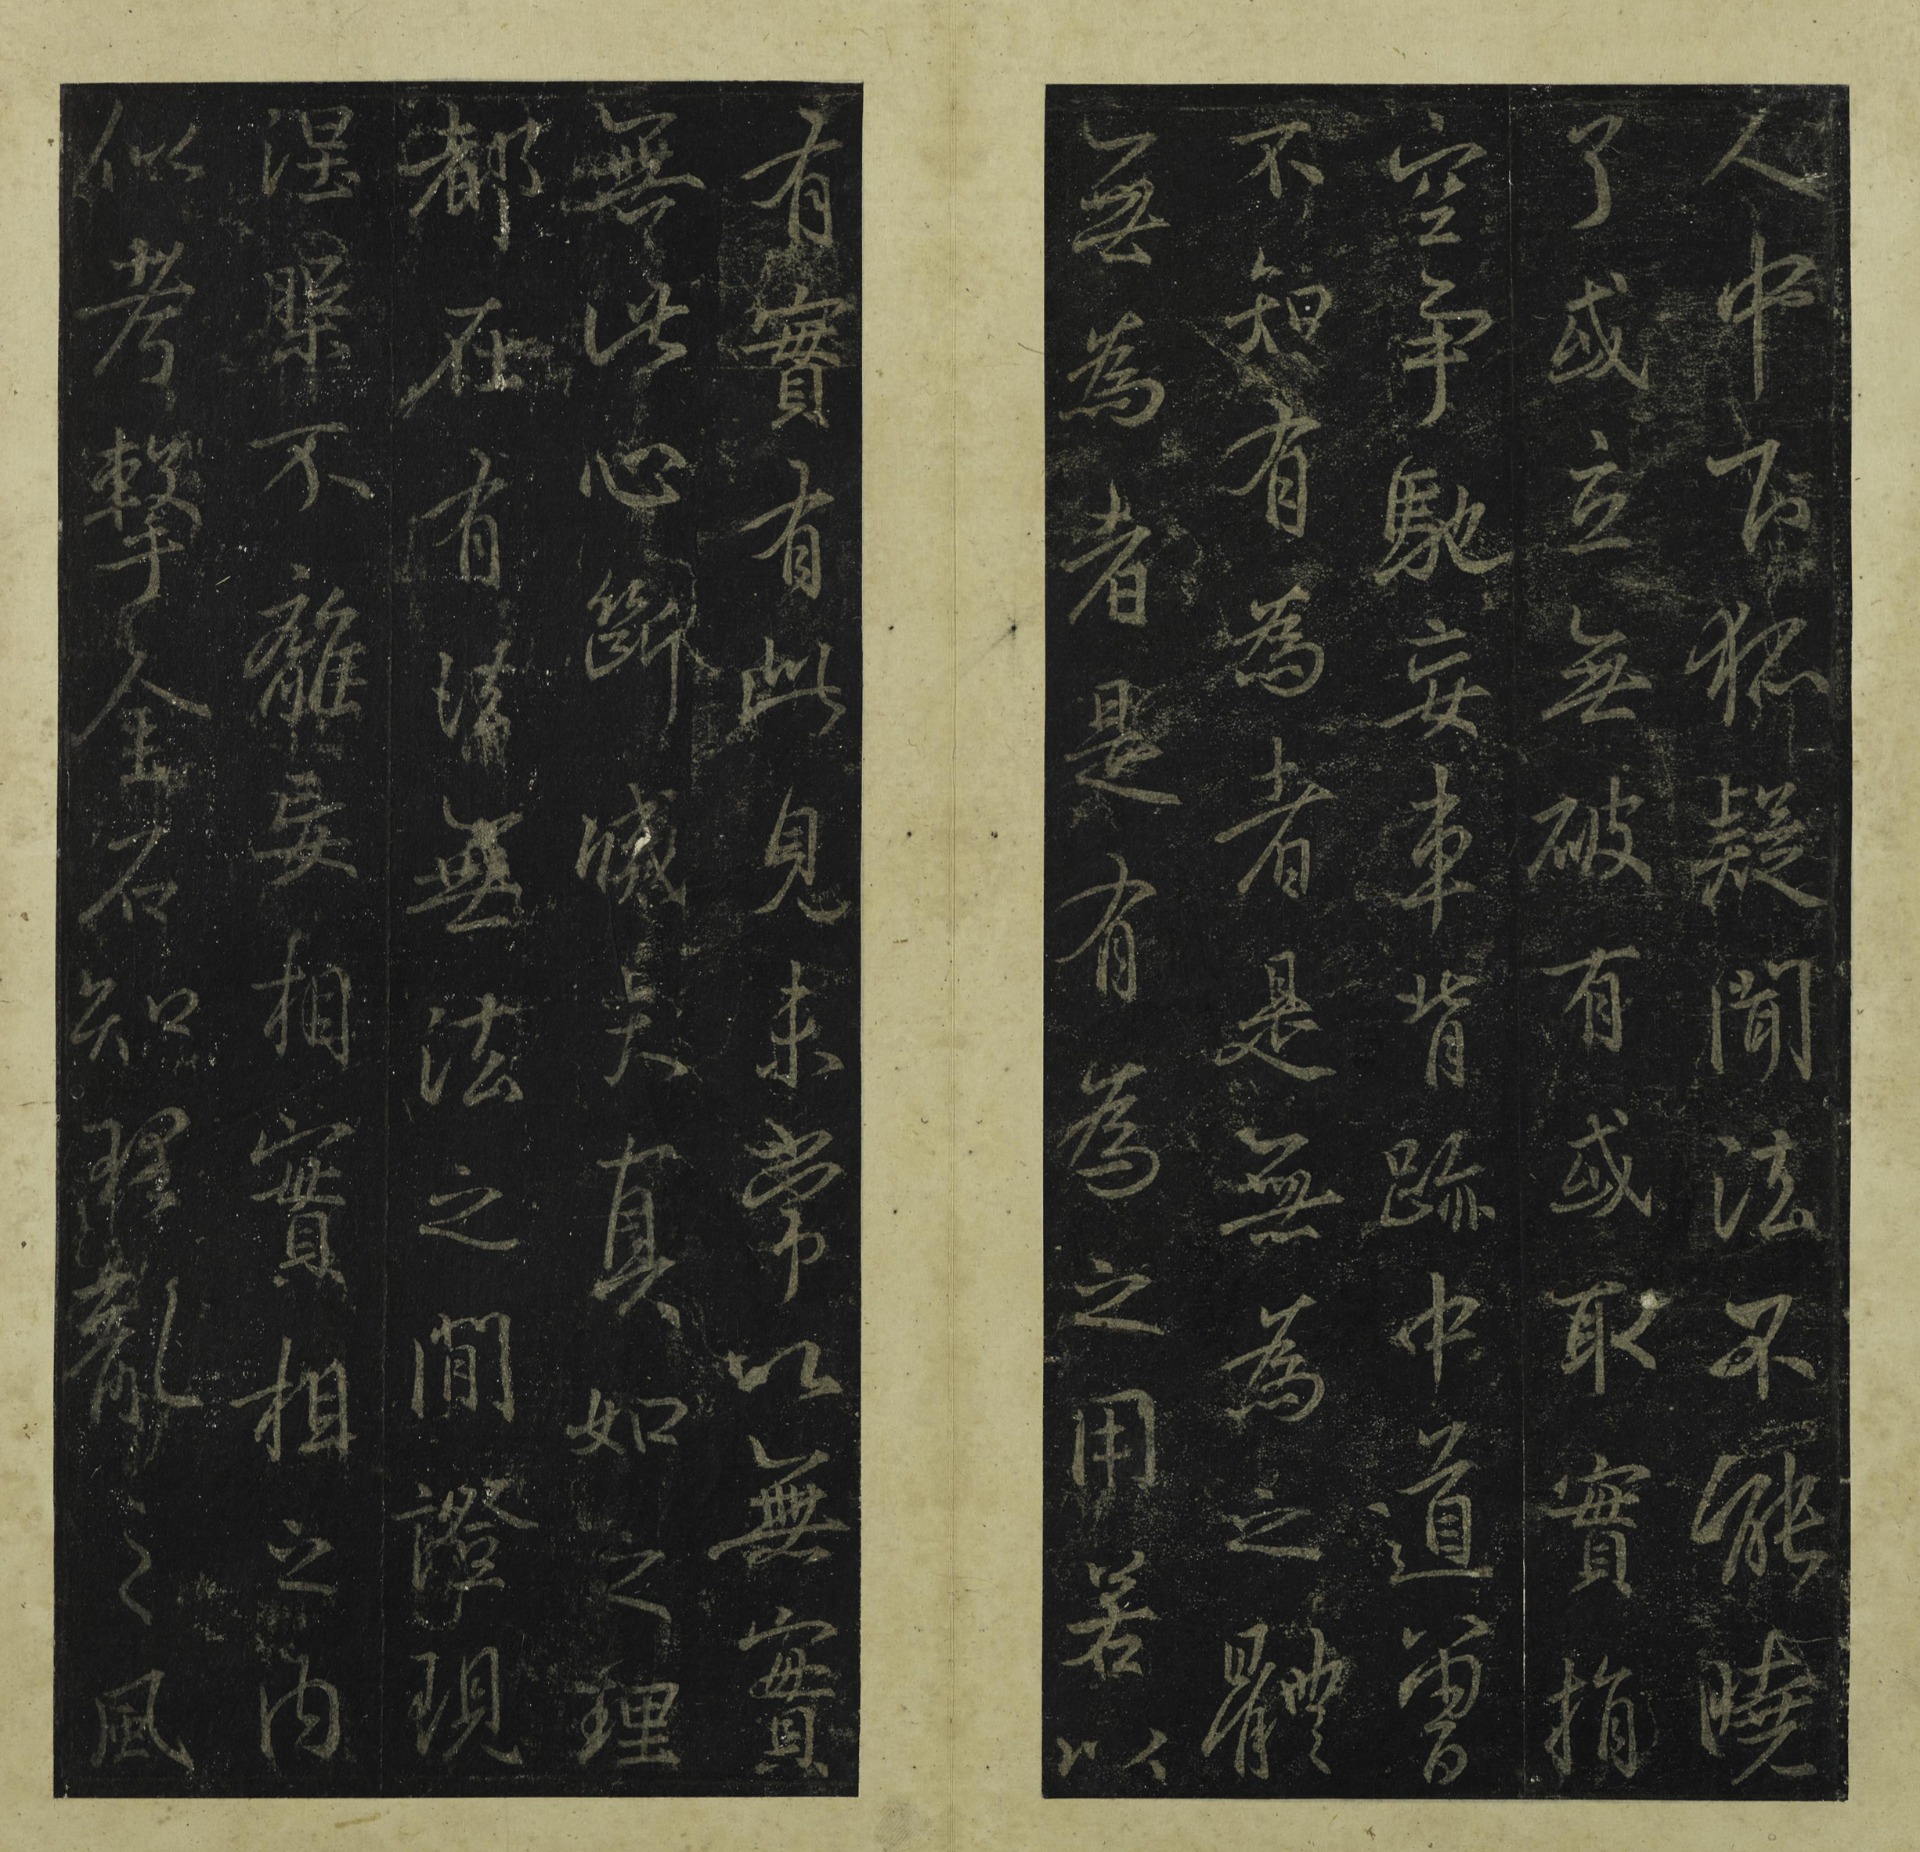 人中下狐疑聞法不能曉
了或立無破有或取實捐
空爭馳妄車背跡中道曾
不知有為者是無為之體
無為者是有為之用若以
有實有此見未常以無實
無此心斷滅矣真如之理
都在有諸無法之間證現
涅槃不離妄相實相之內
似考擊金石知理亂之風